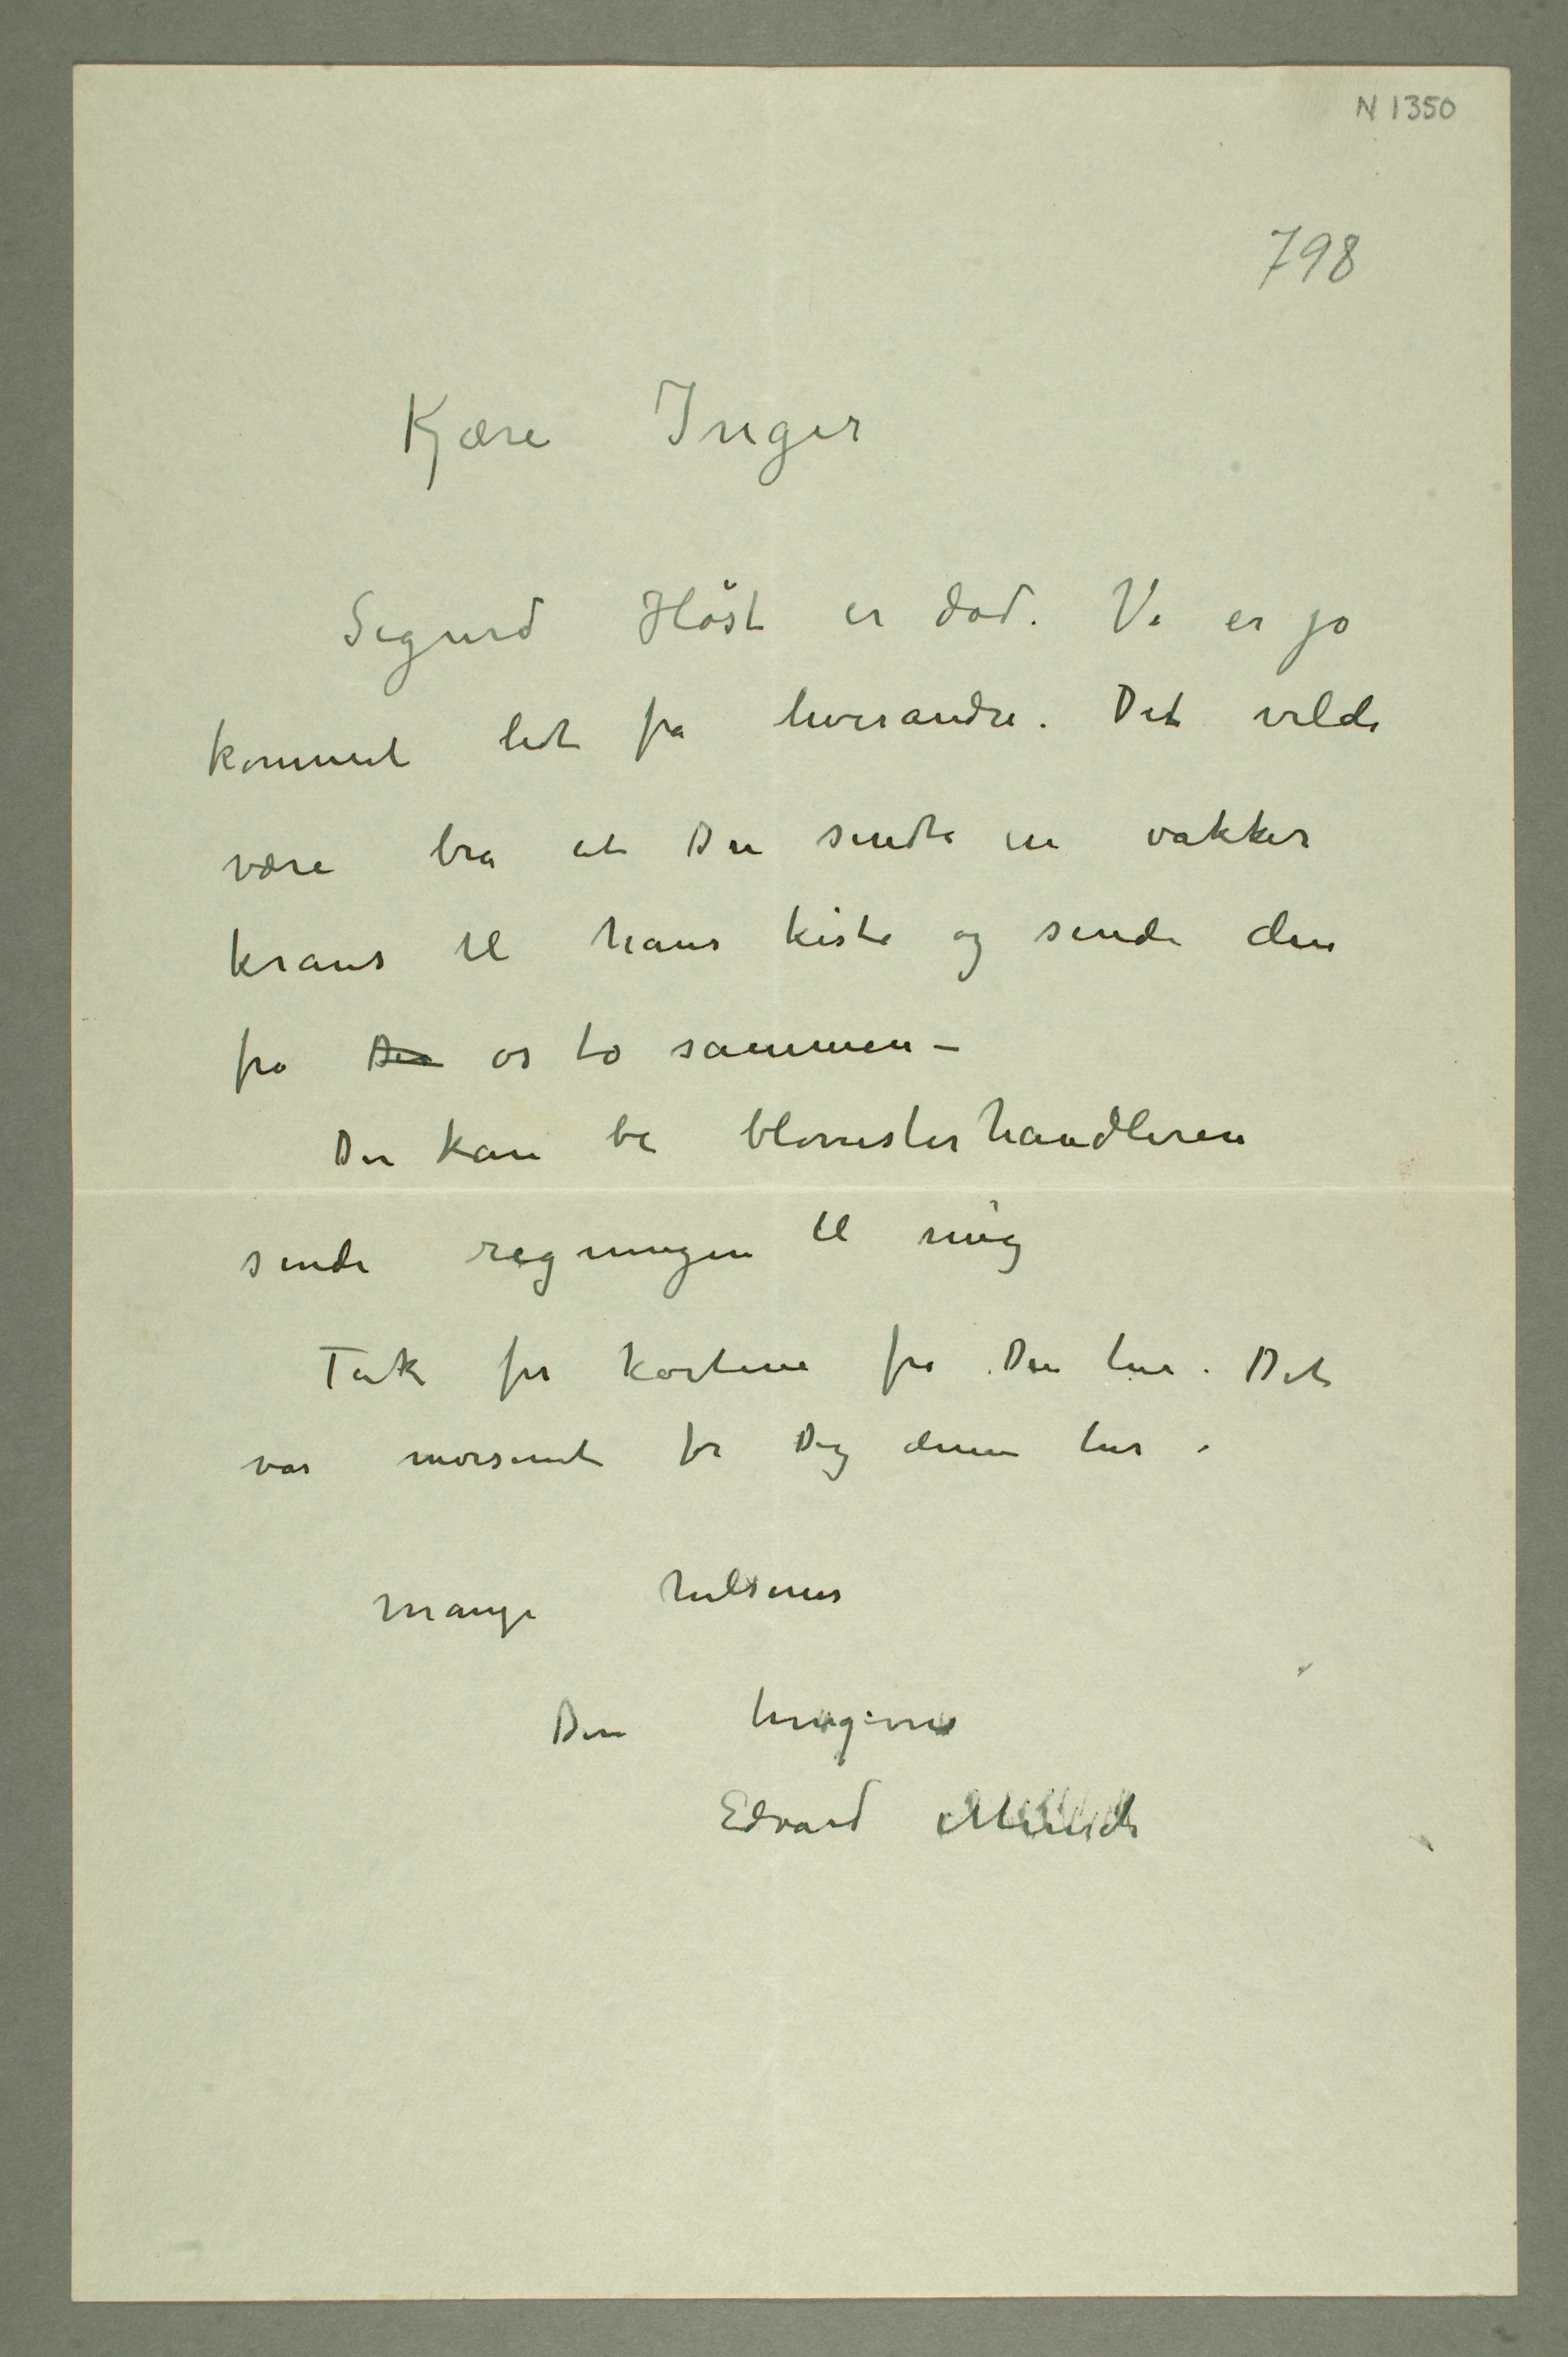 N 1350
798
Kjære Inger
Sigurd Höst er død. Vi er jo
kommet lidt fra hverandre. Det vilde
være bra at Du sendte en vakker
krans til hans kiste og sende den
fra Dei os to sammen –
Du kan be blomsterhandleren
sende regningen til mig
Tak for kortene fra Din tur. Det
var morsomt for Dig denne tur.
Mange hilsener
Din hengivne
Edvard Munch